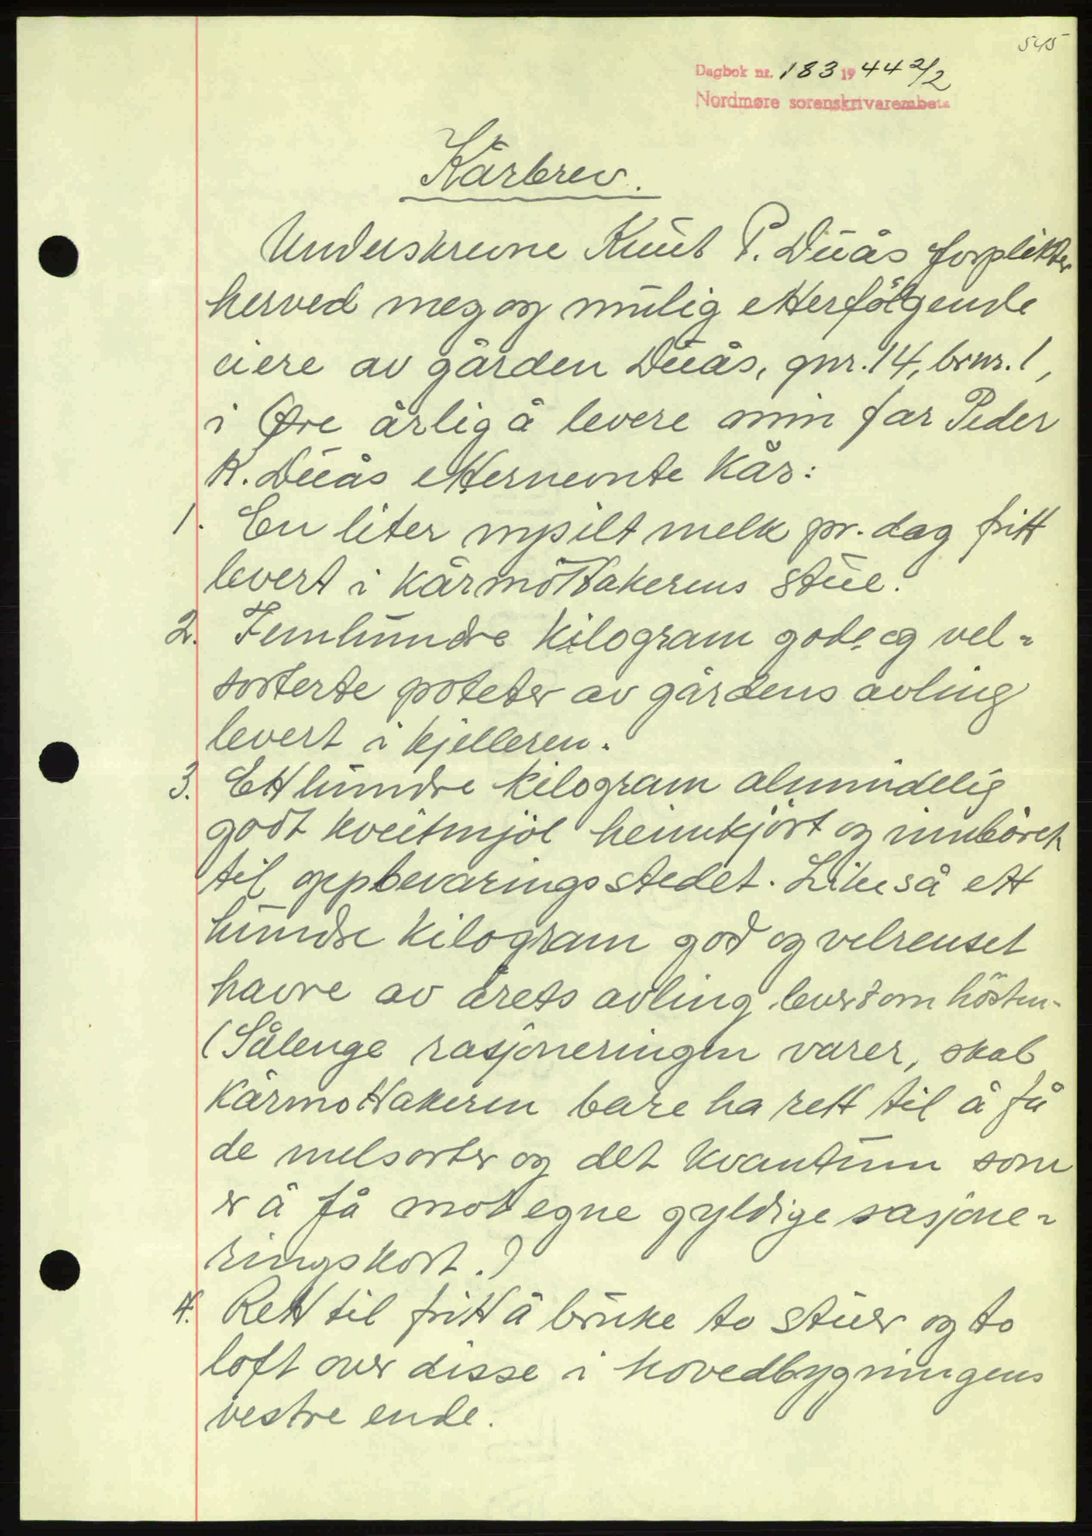 545
Dagbok nr. 183 1944 2/2
Nordmøre sorenskrivarembete
Kårbrev.
Underskrevne Knut P. Duås forplikter
herved meg og mulig etterfölgende
eiere av gården Duås, gnr. 14, brnr. 1,
i Øre årlig å levere min far Peder
K. Duås etternevnte kår:
1. En liter nysilt melk pr. dag fritt
levert i kårmöttakerens stue.
2. Femhundre kilogram gode og vel-
sorterte poteter av gårdens avling
levert i kjelleren.
3. Etthundre kilogram almindelig
godt kveitmjöl heimkjört og innböret
til oppbevaringsstedet. Likeså ett
hundre kilogram god og velrenset
havre av årets avling levert om hösten.
(Sålenge rasjoneringen varer, skal
kårmottakeren bare ha rett til å få
de melsorter og det kvantum som
er å få mot egne gyldige rasjone-
ringskort.)
4. Rett til fritt å bruke to stuer og to
loft over disse i hovedbygningens
vestre ende.